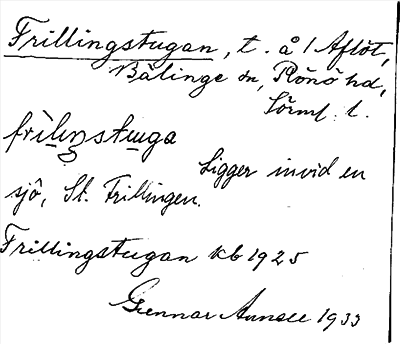 Frillingstugan, t. å 1 Aflöt,
Bälinge sn, Rönö hd,
Sörml. l.
frìliŋstuga
Ligger invid en
sjö, St. Frillingen.
Frillingstugan kb 1925
Gunnar 1933